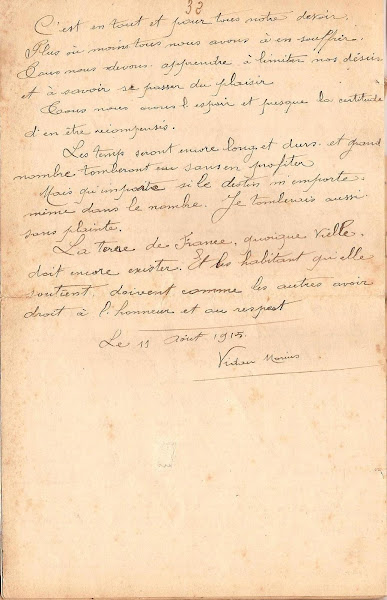 33
C'est en tout et pour tous notre devoir.
Plus où moins tous nous avons à en souffrir.
Tous nous devons apprendre à limiter nos désirs
et à savoir se passer du plaisir
Tous nous avons l'espoir et presque la certitude
d'en être récompensés.
Les temps seront encore long et durs et grand
nombre tomberont eu sans en profiter
Mais qu'importe si le destin m'emporte
même dans le nombre. Je tomberais aussi
sans plainte.
La terre de France, quoique vielle,
doit encore exister. Et les habitant qu'elle
soutient, doivent comme les autres avoir
droit à l'honneur et au respect
Le 11 Août 1915.
Marius